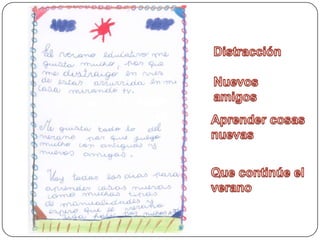 El verano educativo me
gusta mucho, por que
me distraigo en ves
de estar aburrida en mi
casa mirando tv.
Me gusta todo lo del
verano por que juego
mucho con antiguas y
nuevos amigos.
Voy todos los dias para
aprender cosas nuevas
como muchos tipos
de manualidades y
espero que el verano
siga
Distracción
Nuevos
amigos
Aprender cosas
nuevas
Que continúe el
verano